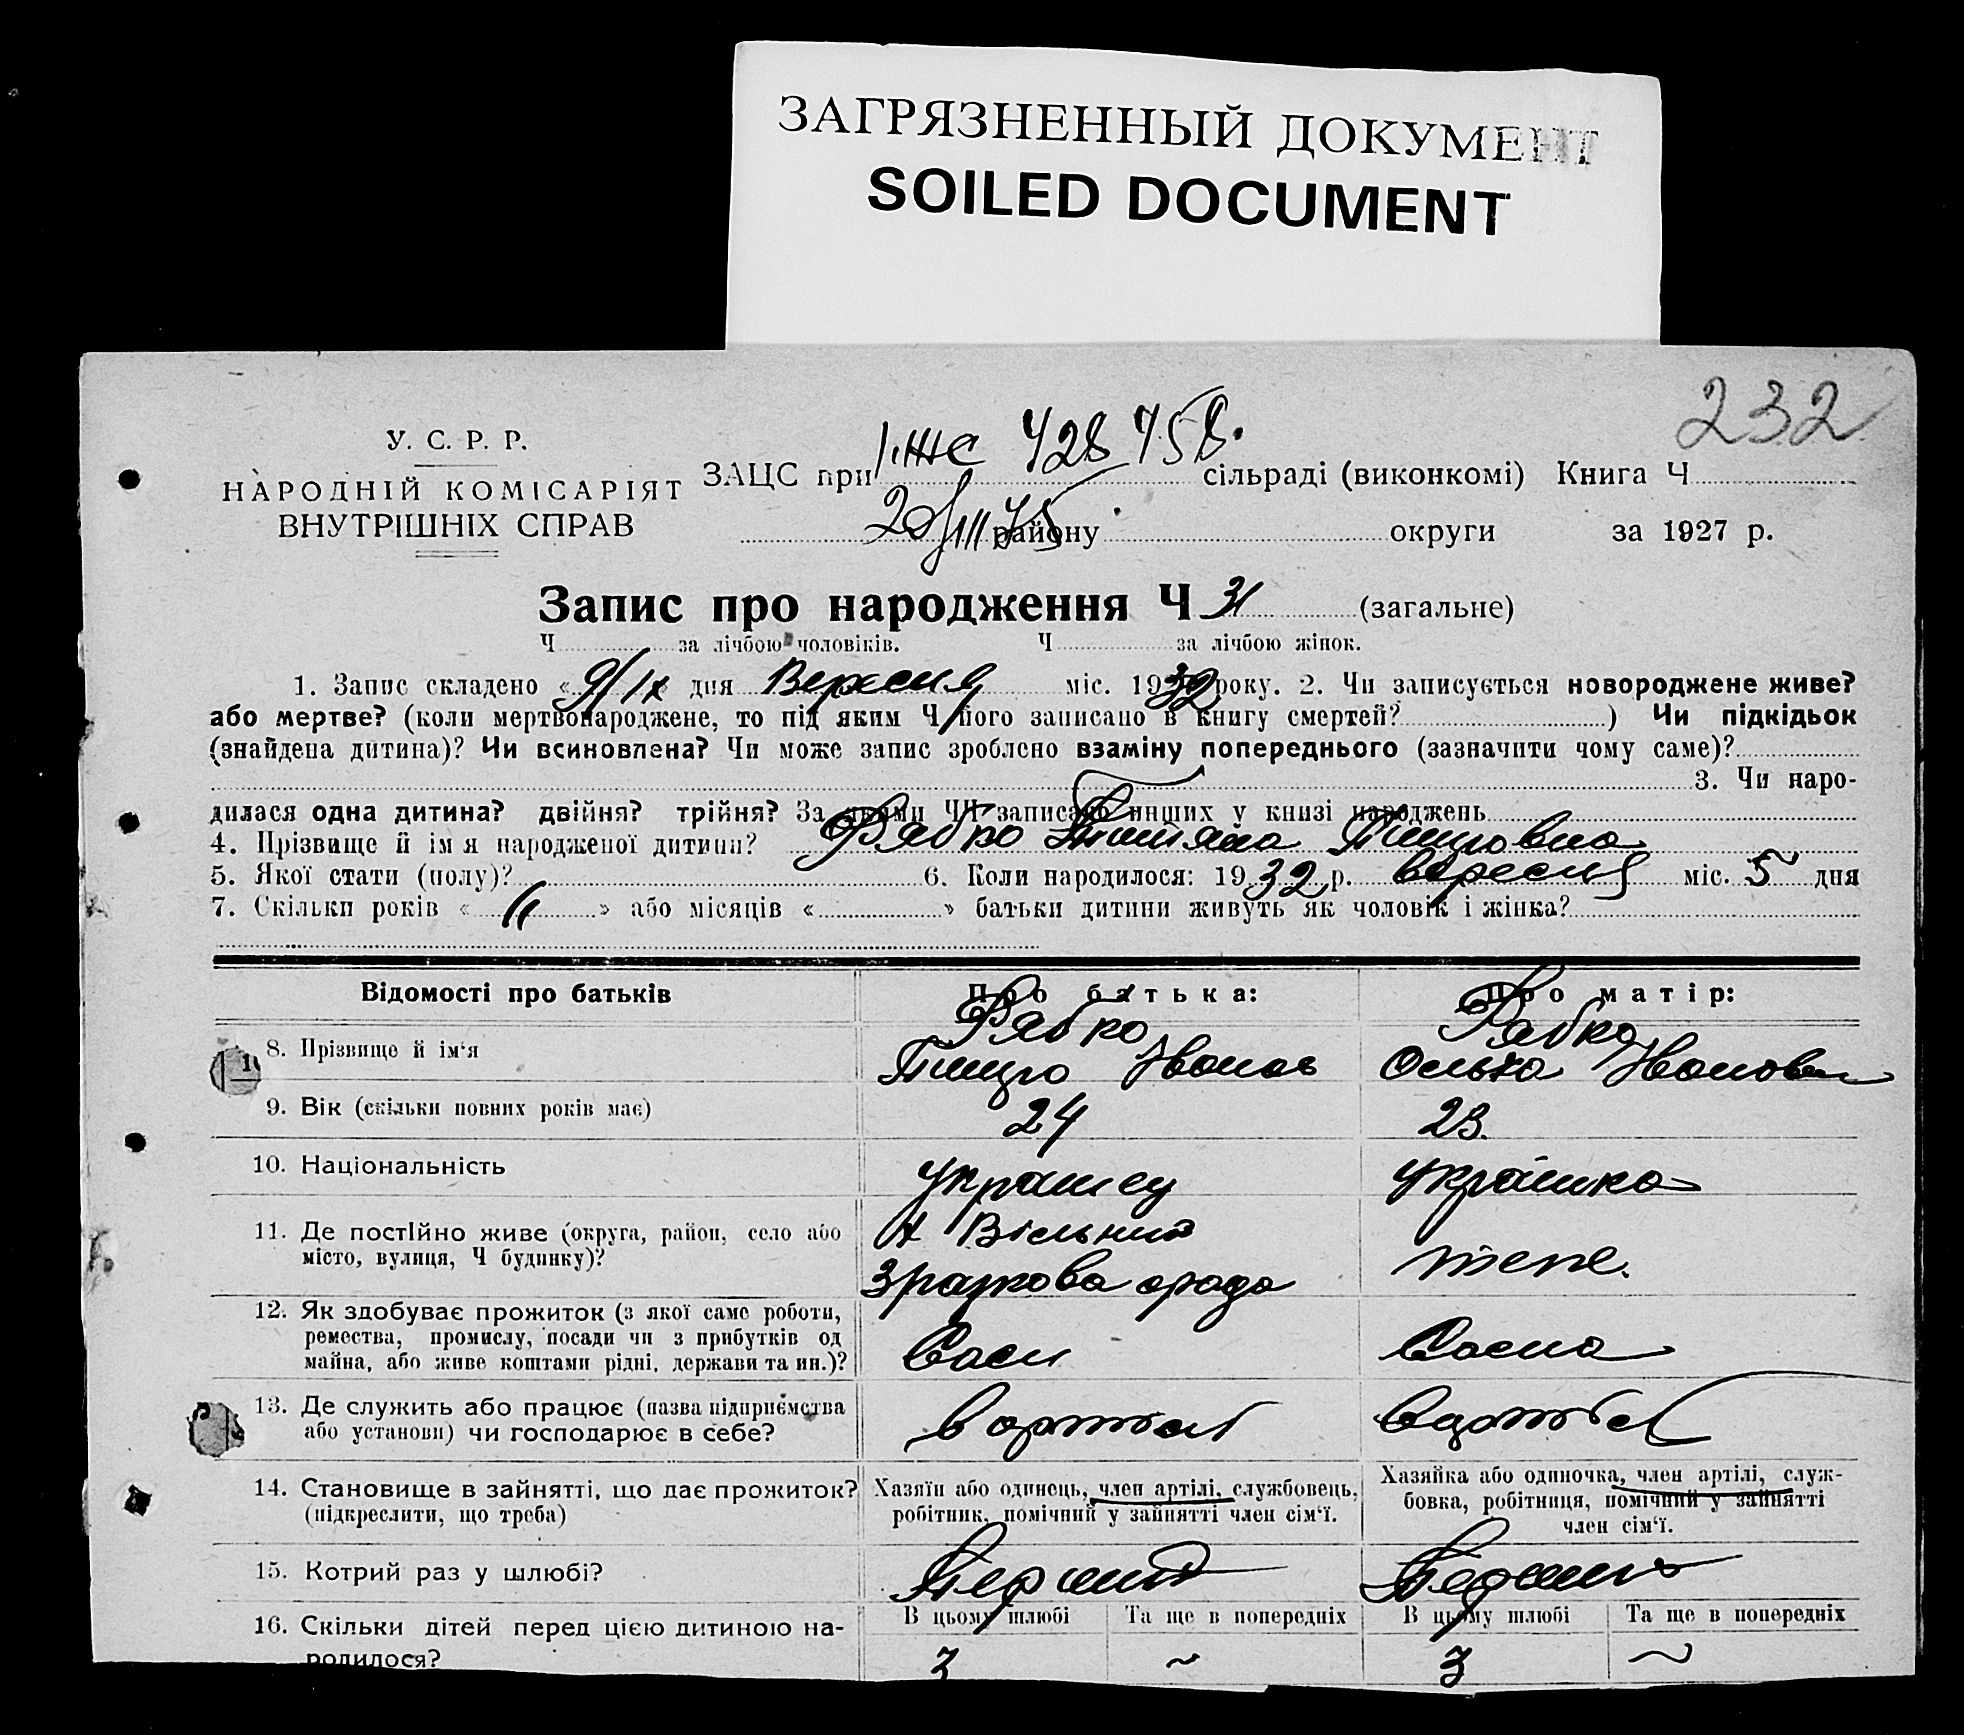 ЗАГРЯЗНЕННЫЙ ДОКУМЕНТ
SOILED DOCUMENT
232
У. С. Р. Р.
НАРОДНІЙ КОМІСАРІЯТ
ВНУТРІШНІХ СПРАВ
ЗАЦС при сільраді (виконкомі) Книга Ч
району округи за 1927 р.
Запис про народження Ч 31 (загальне)
Ч за лічбою чоловіків. Ч за лічбою жінок.
1. Запис складено « 9/IX » дня Вересня міс. 1932 року. 2. Чи записується новороджене живе?
або мертве? (коли мертвонароджене, то під яким Ч його записано в книгу смертей? ) Чи підкідьок
(знайдена дитина)? Чи всиновлена? Чи може запис зроблено взаміну попереднього (зазначити чому саме)?
3. Чи наро-
дилася одна дитина? двійня? трійня? За якими ЧЧ записано инших у книзі народжень
4. Прізвище й ім'я народженої дитини? Рябко Тетяна
5. Якої стати (полу)? 6. Коли народилося: 1932 р. вересня міс. 5 дня
7. Скільки років « » або місяців « » батьки дитини живуть як чоловік і жінка?
Відомості про батьків Про батька: Про матір:
Рябко Рябко
8. Прізвище й ім'я Ольга Іванов
9. Вік (скільки повних років має) 24 23.
10. Національність українец українка
11. Де постійно живе (округа, район, село або
місто, вулиця, Ч будинку)?
х Вільний
теже.
12. Як здобуває прожиток (з якої саме роботи,
ремества, промислу, посади чи з прибутків од
майна, або живе коштами рідні, держави та ин.)?
13. Де служить або працює (назва підприємства
або установи) чи господарює в себе?
в артілі в артілі
14. Становище в зайнятті, що дає прожиток?
(підкреслити, що треба)
Хазяїн або одинець, член артілі, службовець,
робітник, помічний у зайнятті член сім'ї.
Хазяйка або одиночка, член артілі, служ-
бовка, робітниця, помічний у зайнятті
член сім'ї.
15. Котрий раз у шлюбі? Перший Перший
16. Скільки дітей перед цією дитиною на-
родилося?
В цьому шлюбі Та ще в попередніх В цьому шлюбі Та ще в попередніх
3 ~ 3 ~